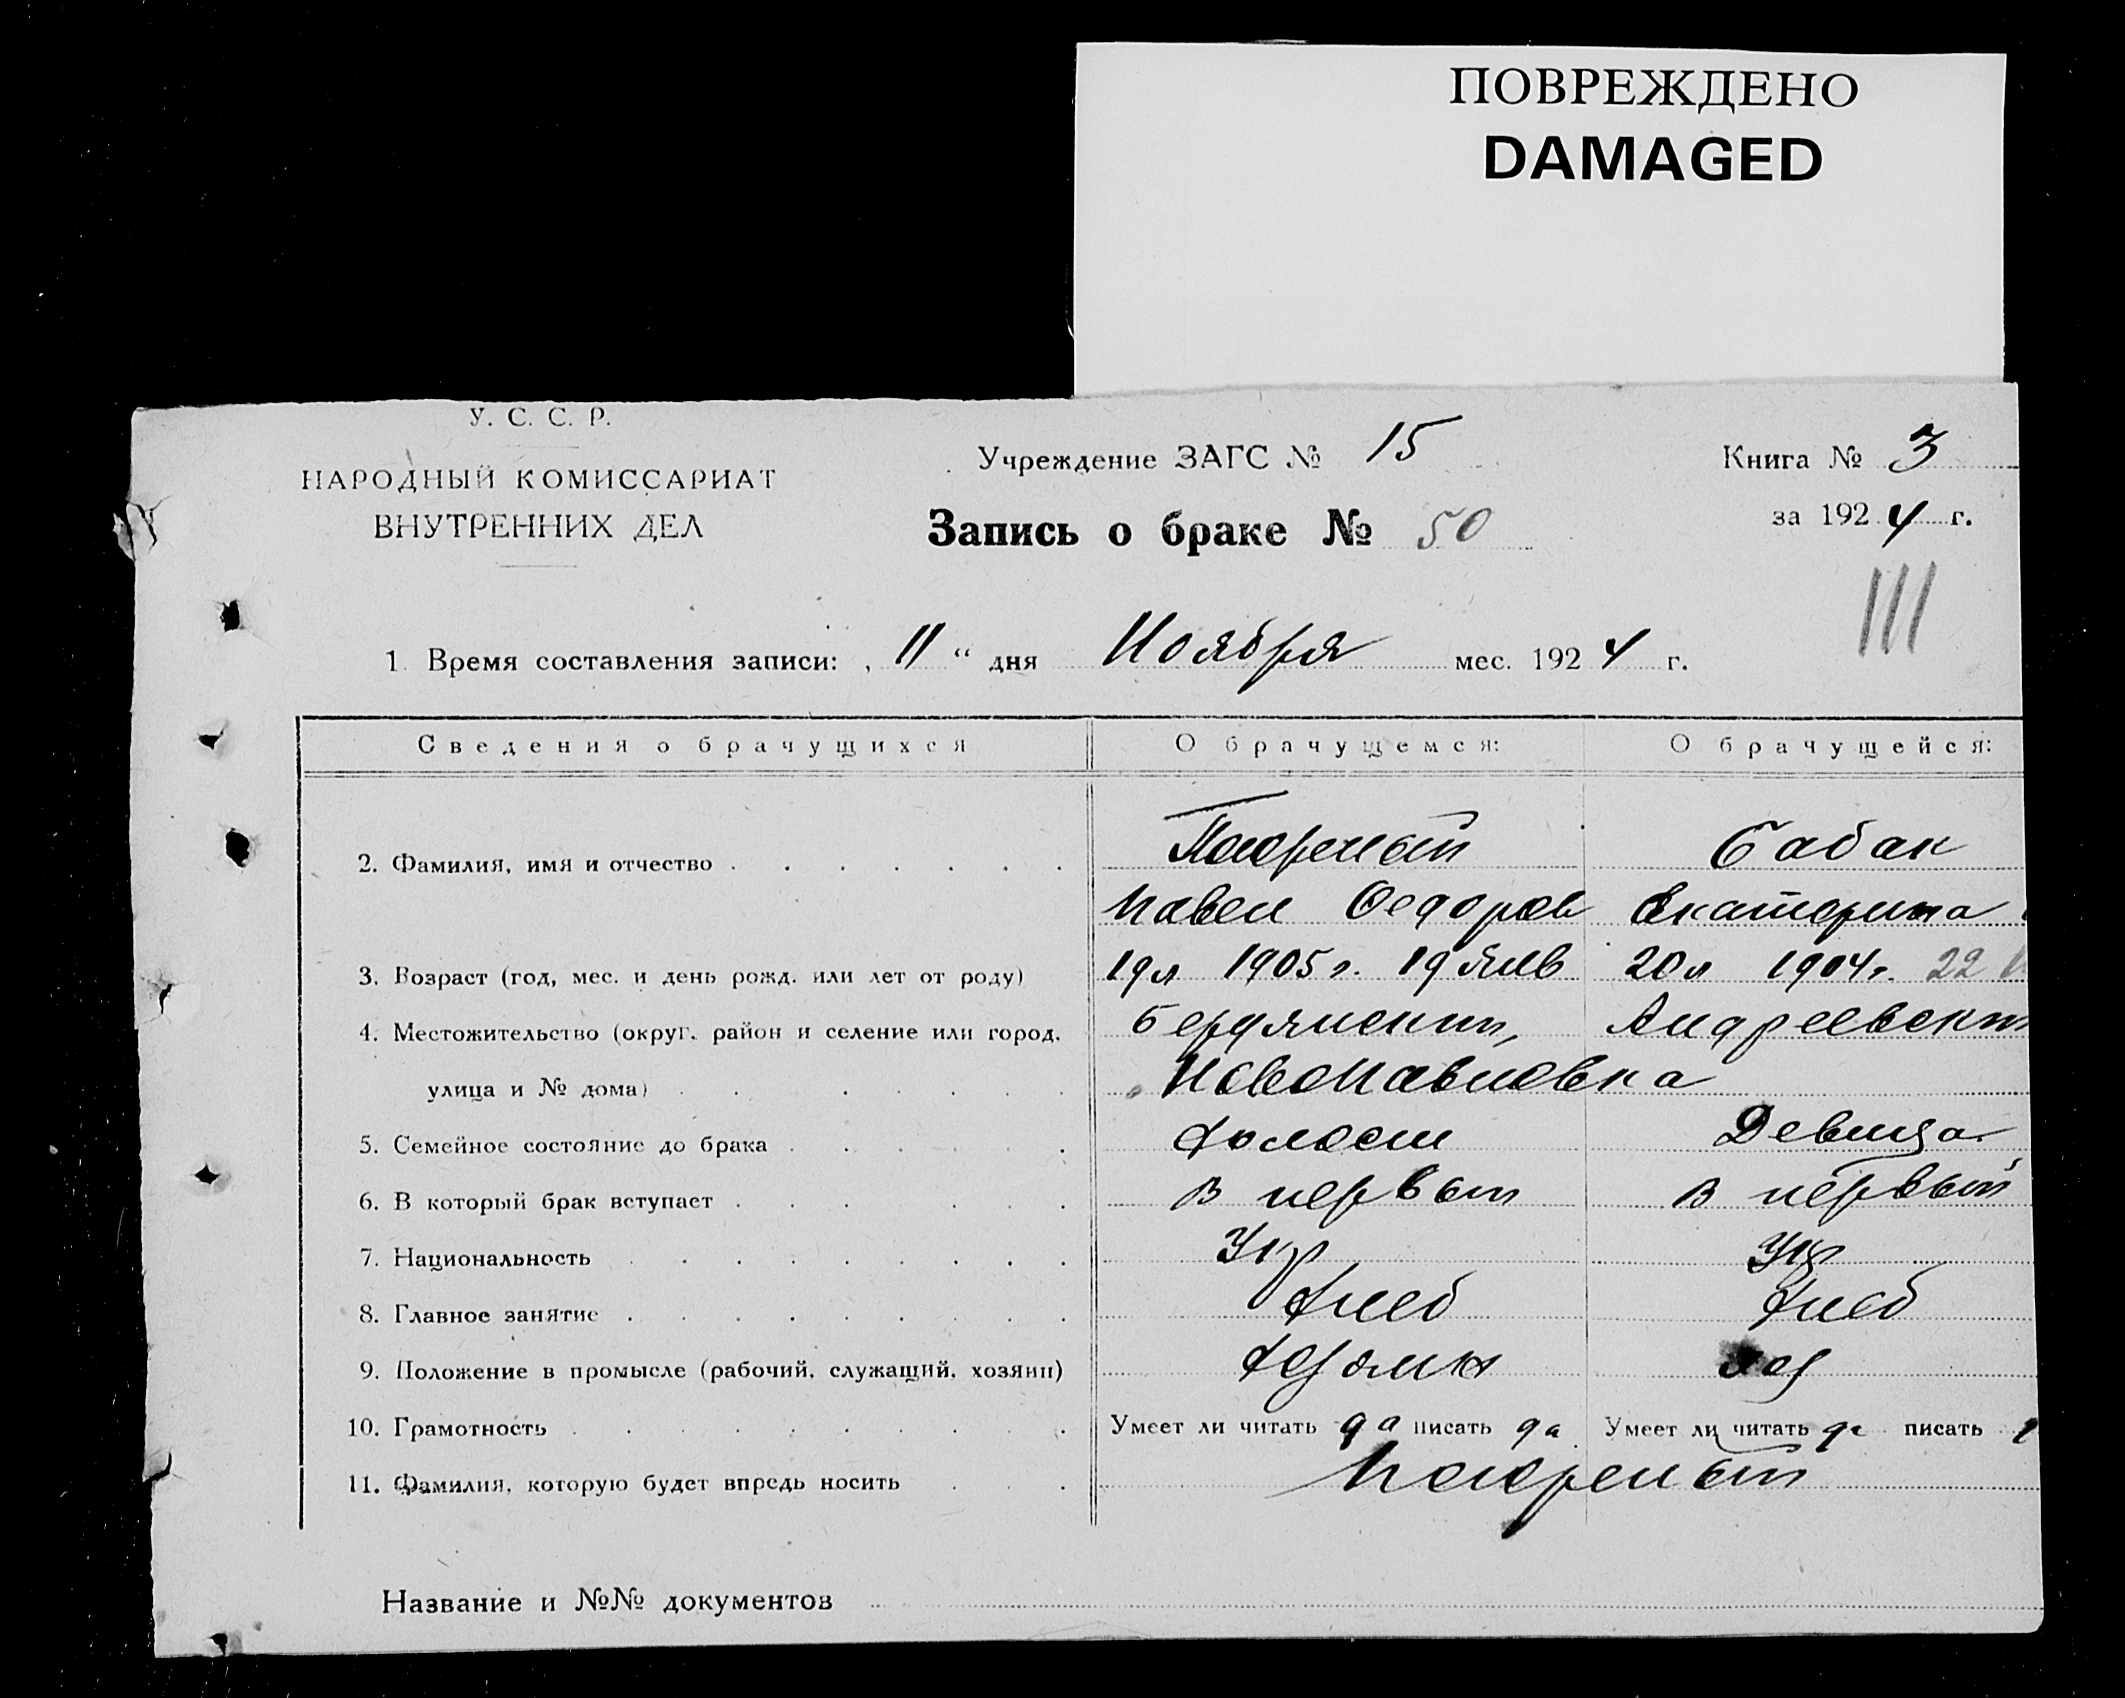 ПОВРЕЖДЕНО
DAMAGED
У. С. С. Р.
НАРОДНЫЙ КОМИССАРИАТ
ВНУТРЕННИХ ДЕЛ
Учреждение ЗАГС № 15
Книга № 3
Запись о браке № 50
за 1924 г.
III
1. Время составления записи: „11“ дня Ноября мес. 1924 г.
Сведения о брачущихся О брачущемся: О брачущейся:
2. Фамилия, имя и отчество Сабак
Павел Федоров Екатерина
3. Возраст (год, мес. и день рожд. или лет от роду) 19 л 1905 г. 19 Янв 20 л 1904 г. 22
4. Местожительство (округ, район и селение или город, Бердянский, Андреевский
улица и № дома) Новопавловка
5. Семейное состояние до брака Холост Девица
6. В который брак вступает в первый в первый
7. Национальность Укр Укр
8. Главное занятие Хлеб Хлеб
9. Положение в промысле (рабочий, служащий, хозяин) Хозяин
10. Грамотность Умеет ли читать да писать да Умеет ли читать да писать
11. Фамилия, которую будет впредь носить
Название и №№ документов